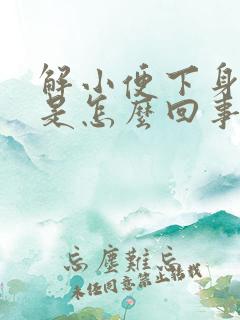 解小便下身
是怎麼回事
忘塵難忘
未经同意禁止转载